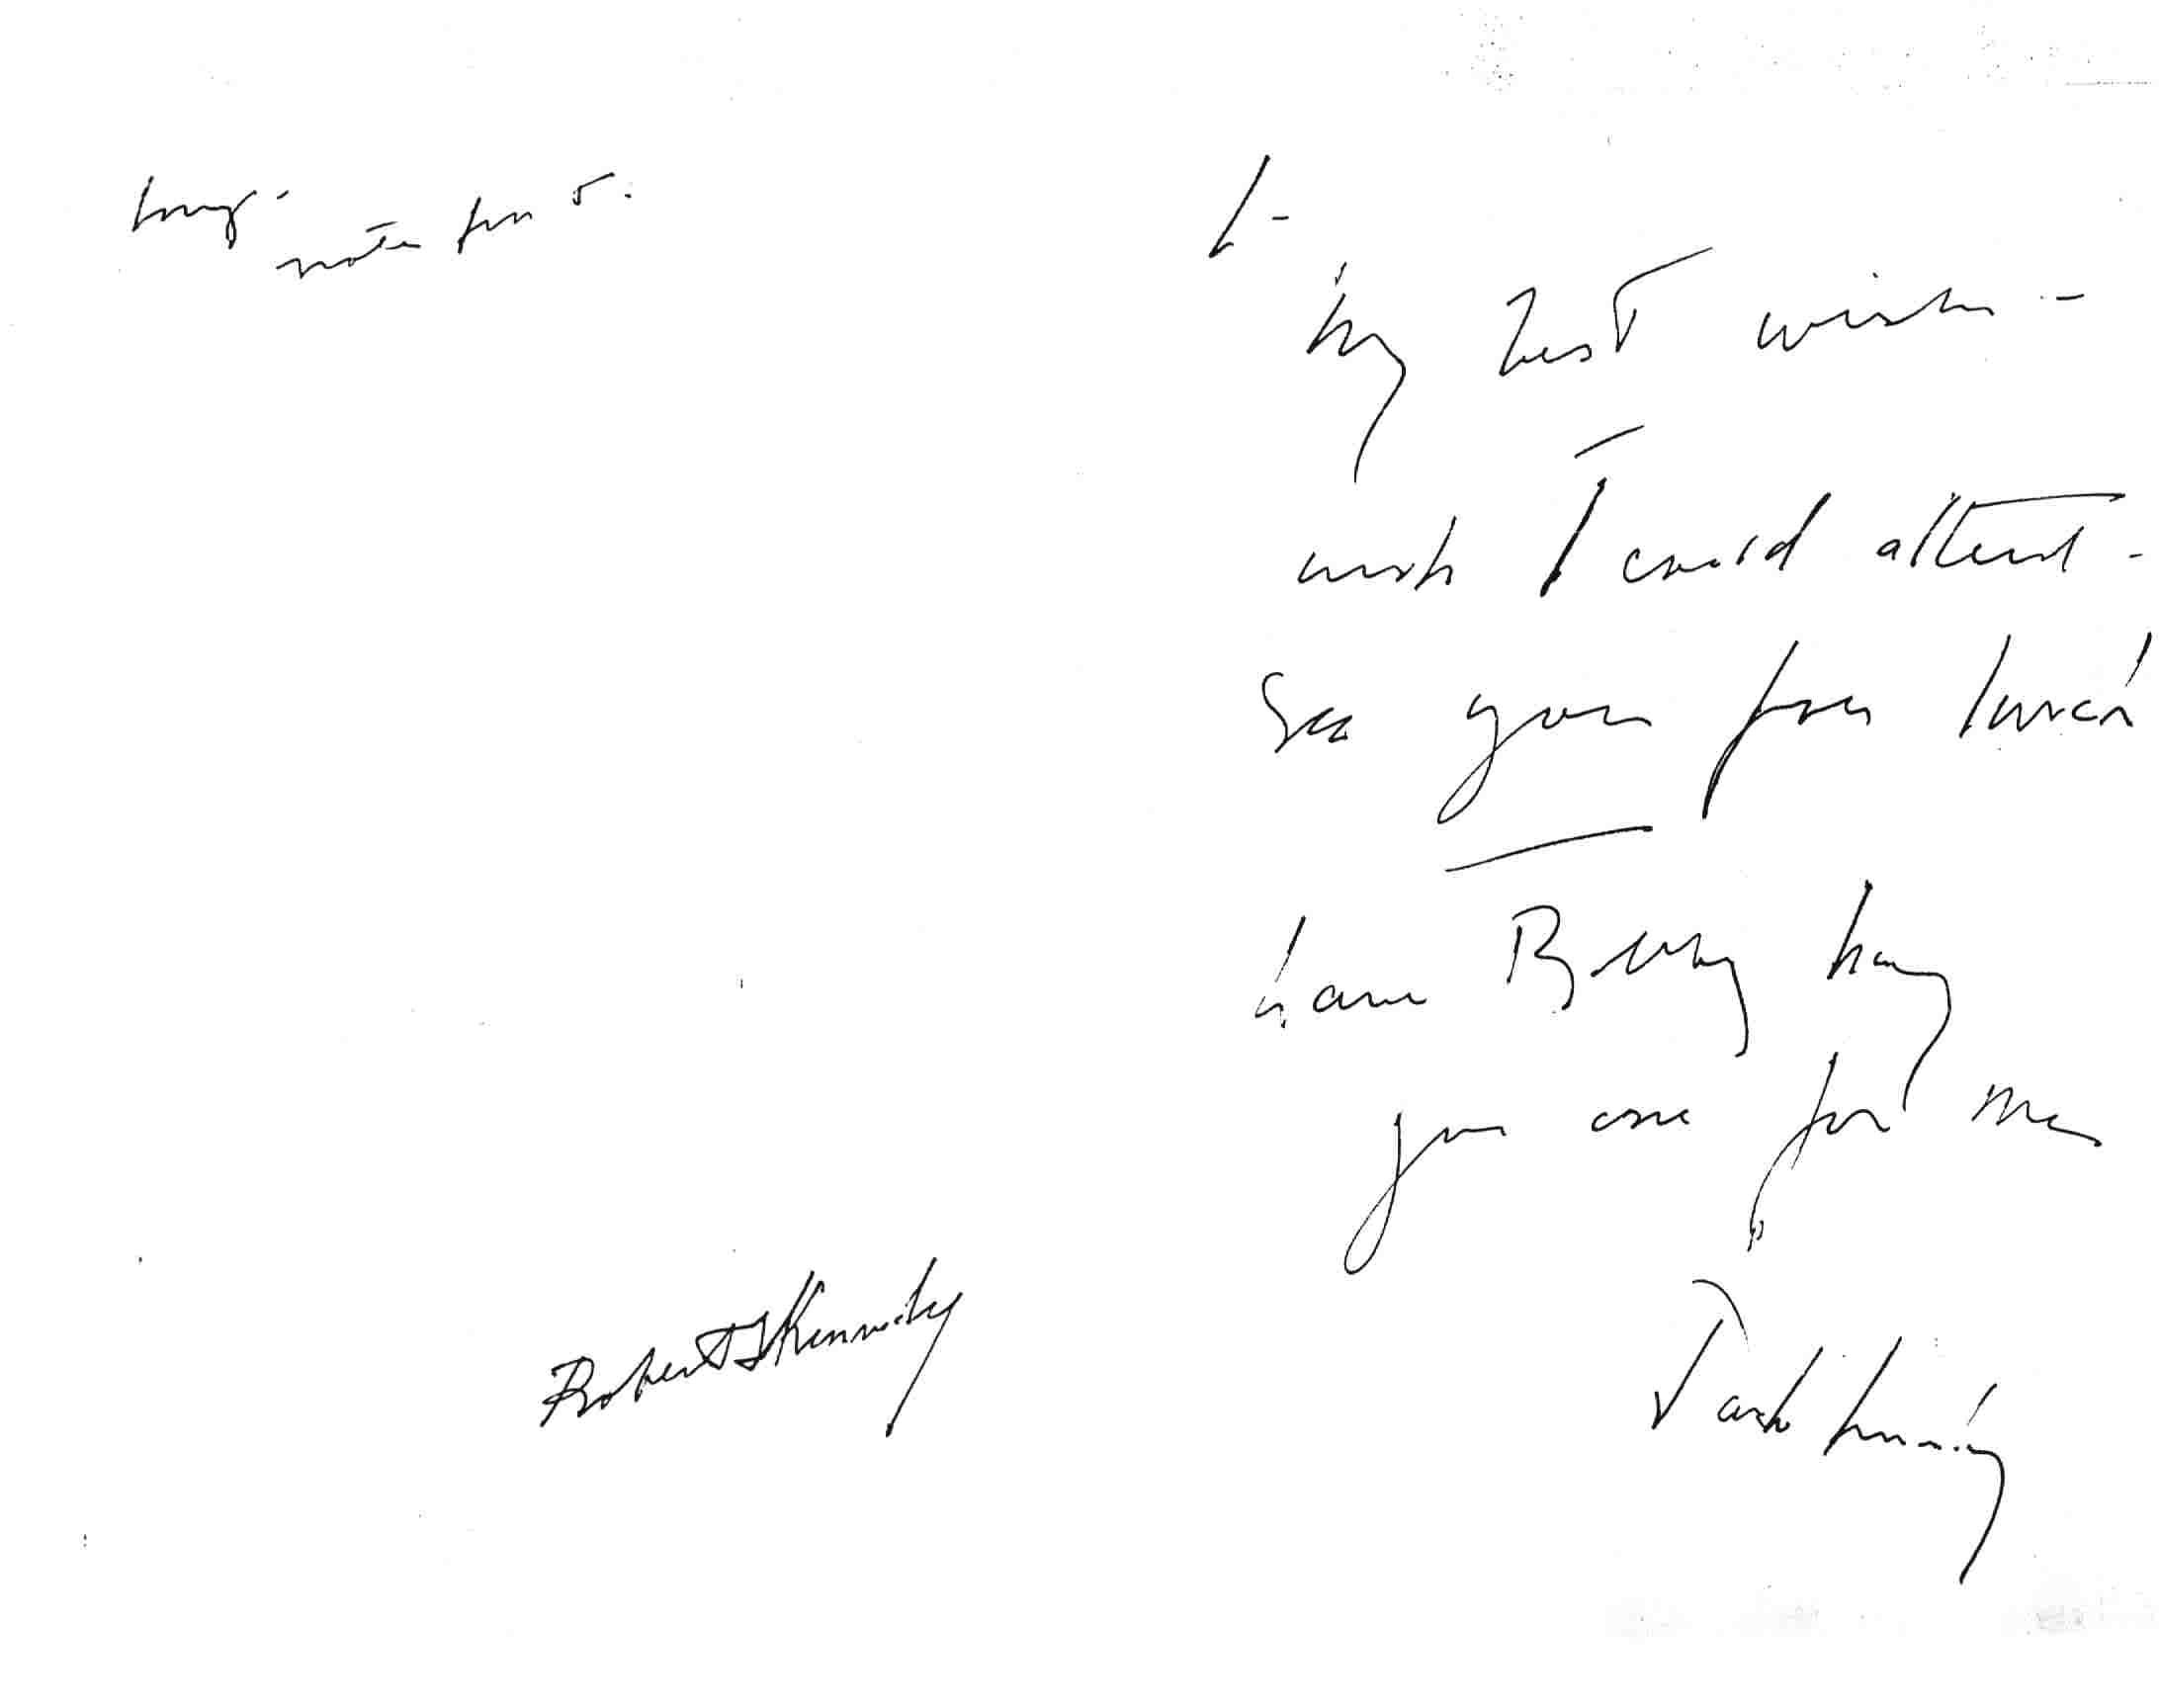 note
My best wishes -
wish I could attend -
See you for lunch
have Bobby hang
you one for me
Robert F Kennedy
Jack Kennedy